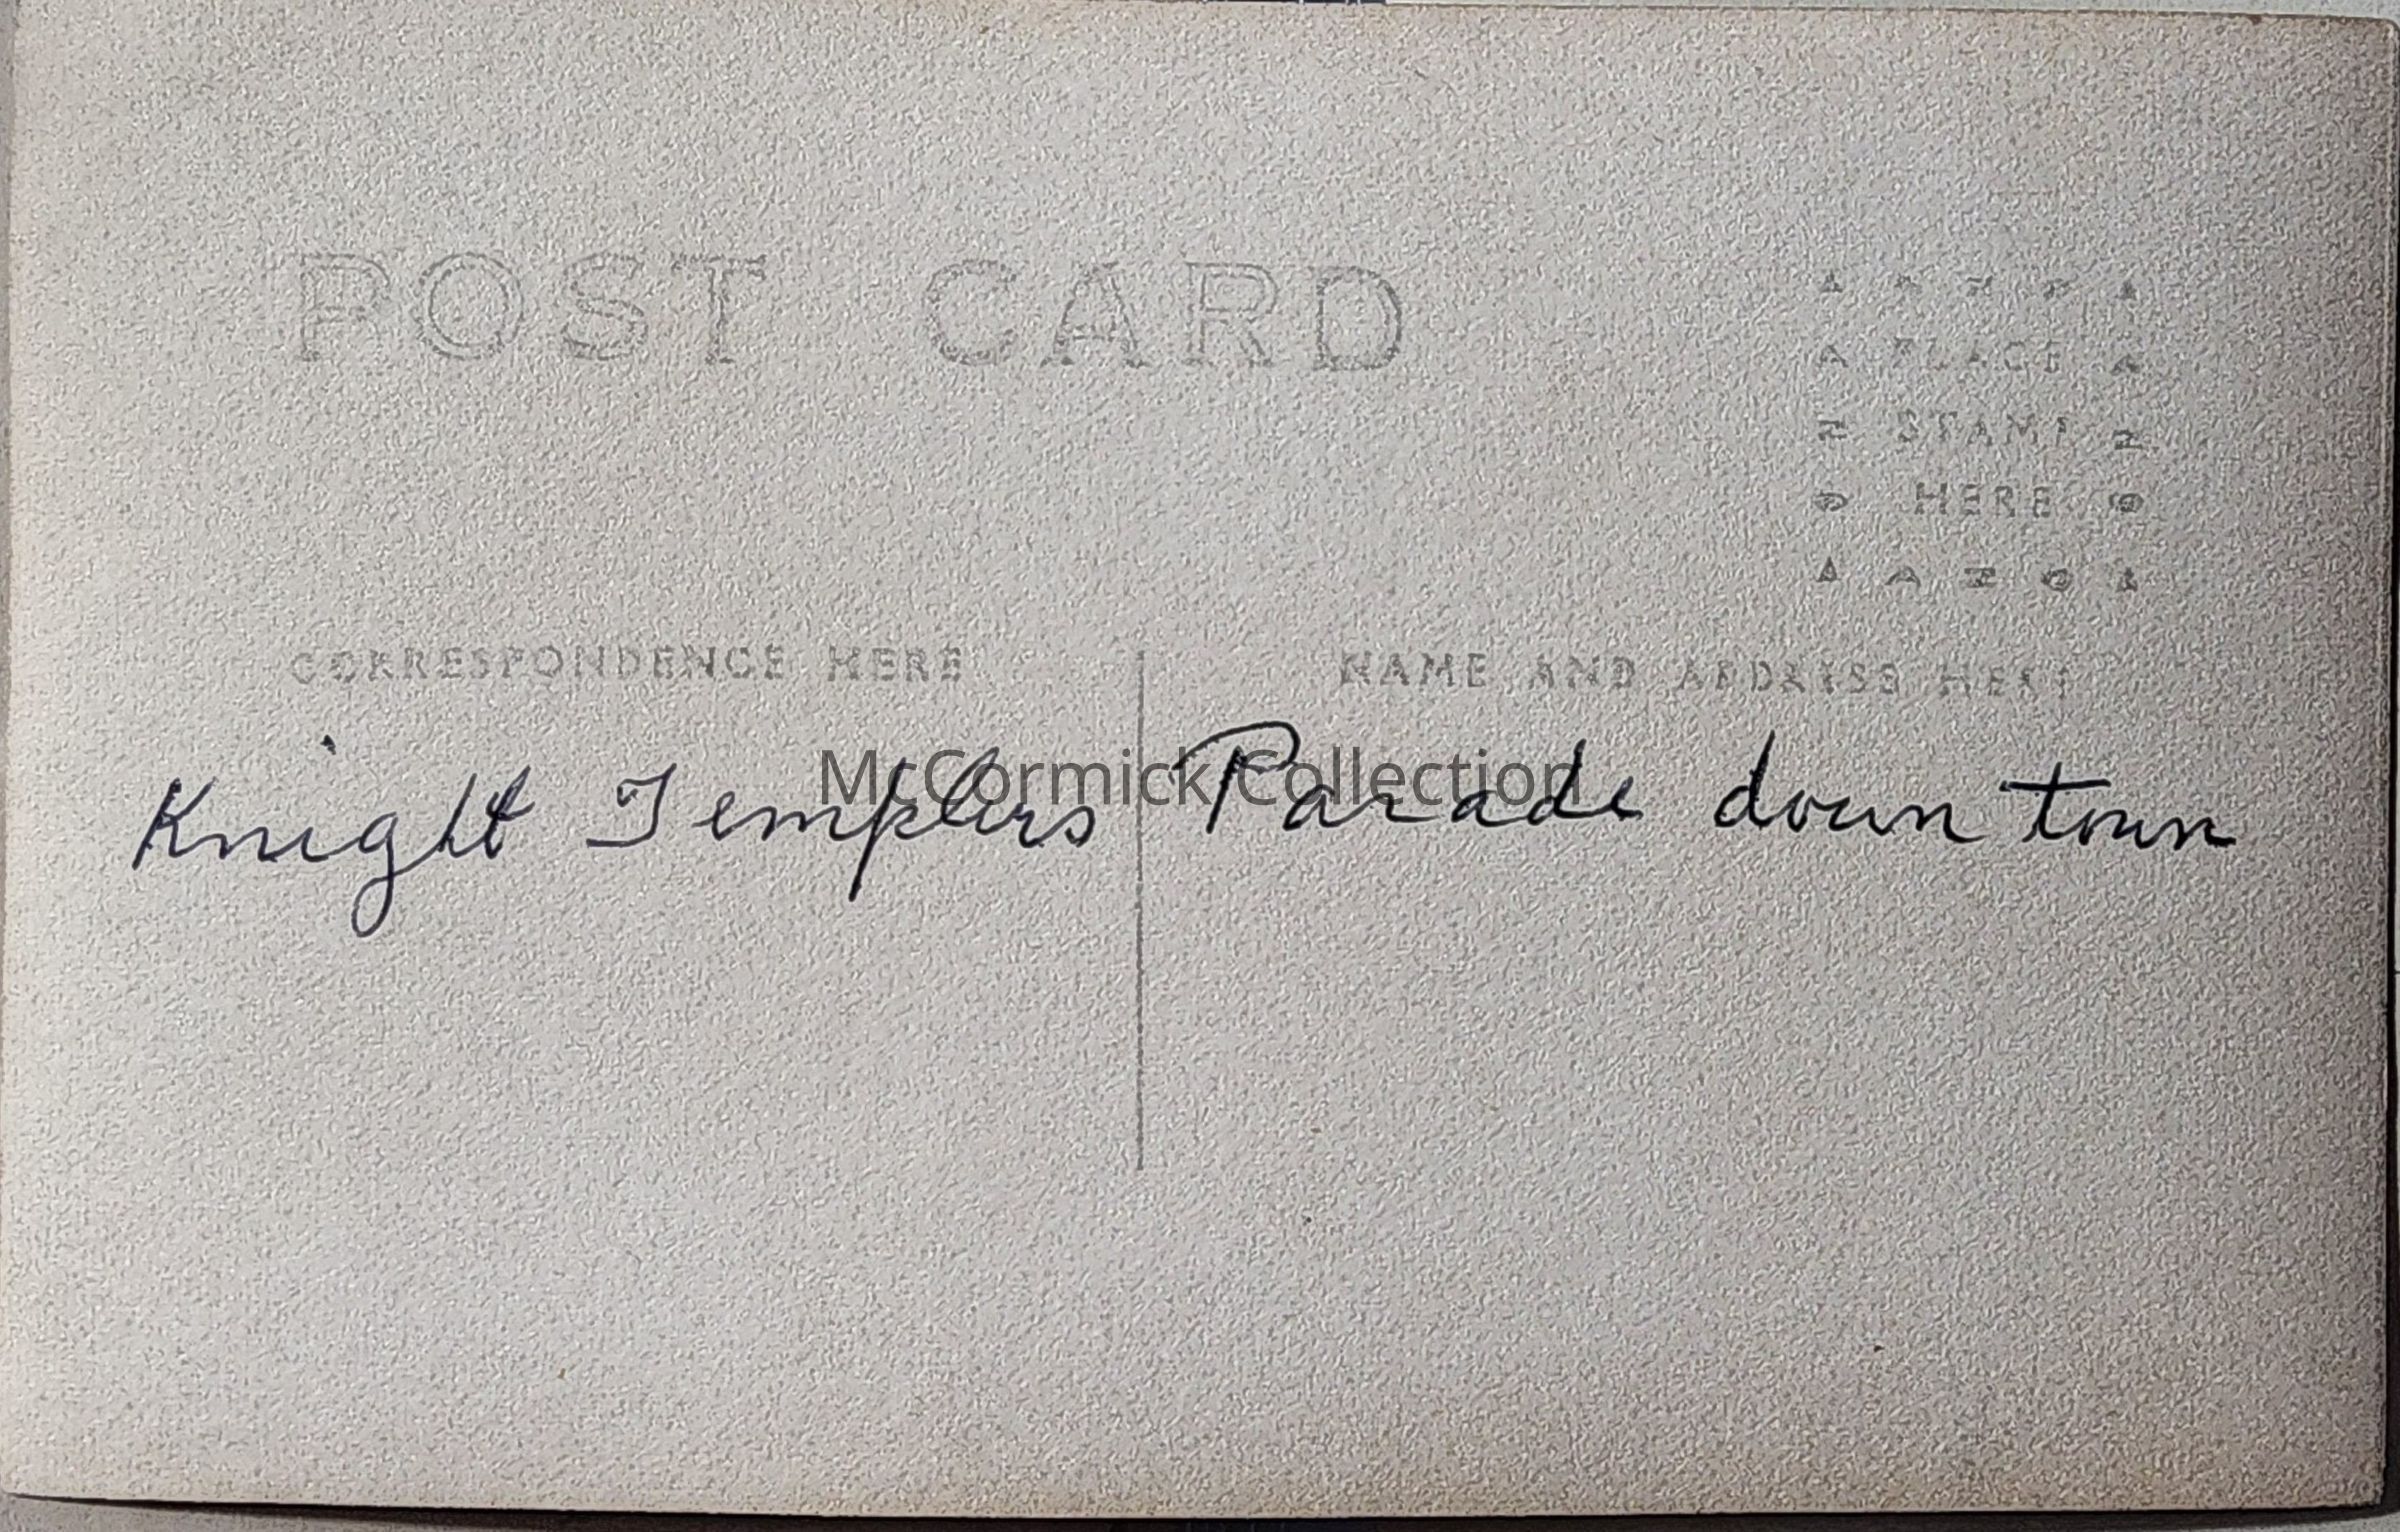 POST CARD
PLACE
STAMP
HERE
CORRESPONDENCE HERE
NAME AND ADDRESS HERE
Knight Templers Parade down town
McCormick Collection